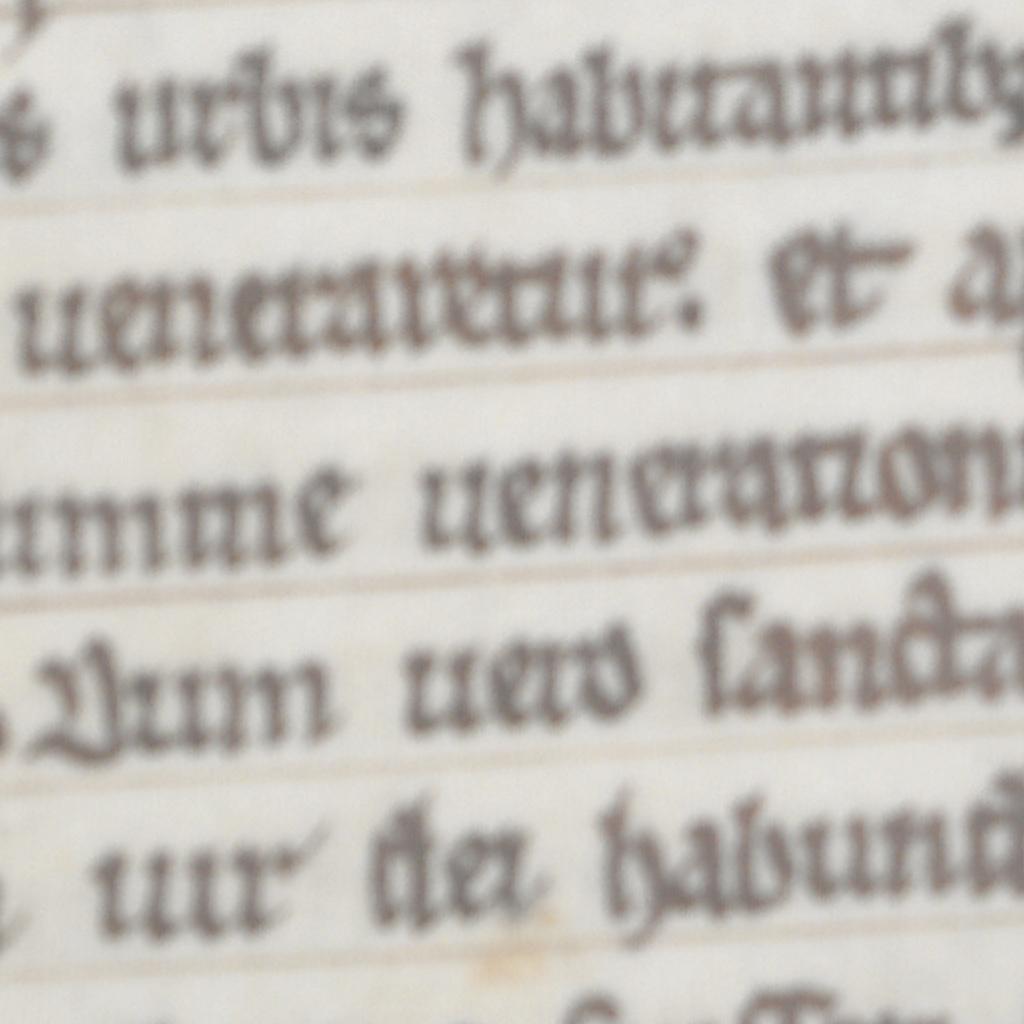 s urbis habitantib;
ueneraretur. et a
umme ueneration
Dum uero sancta
uir dei habund